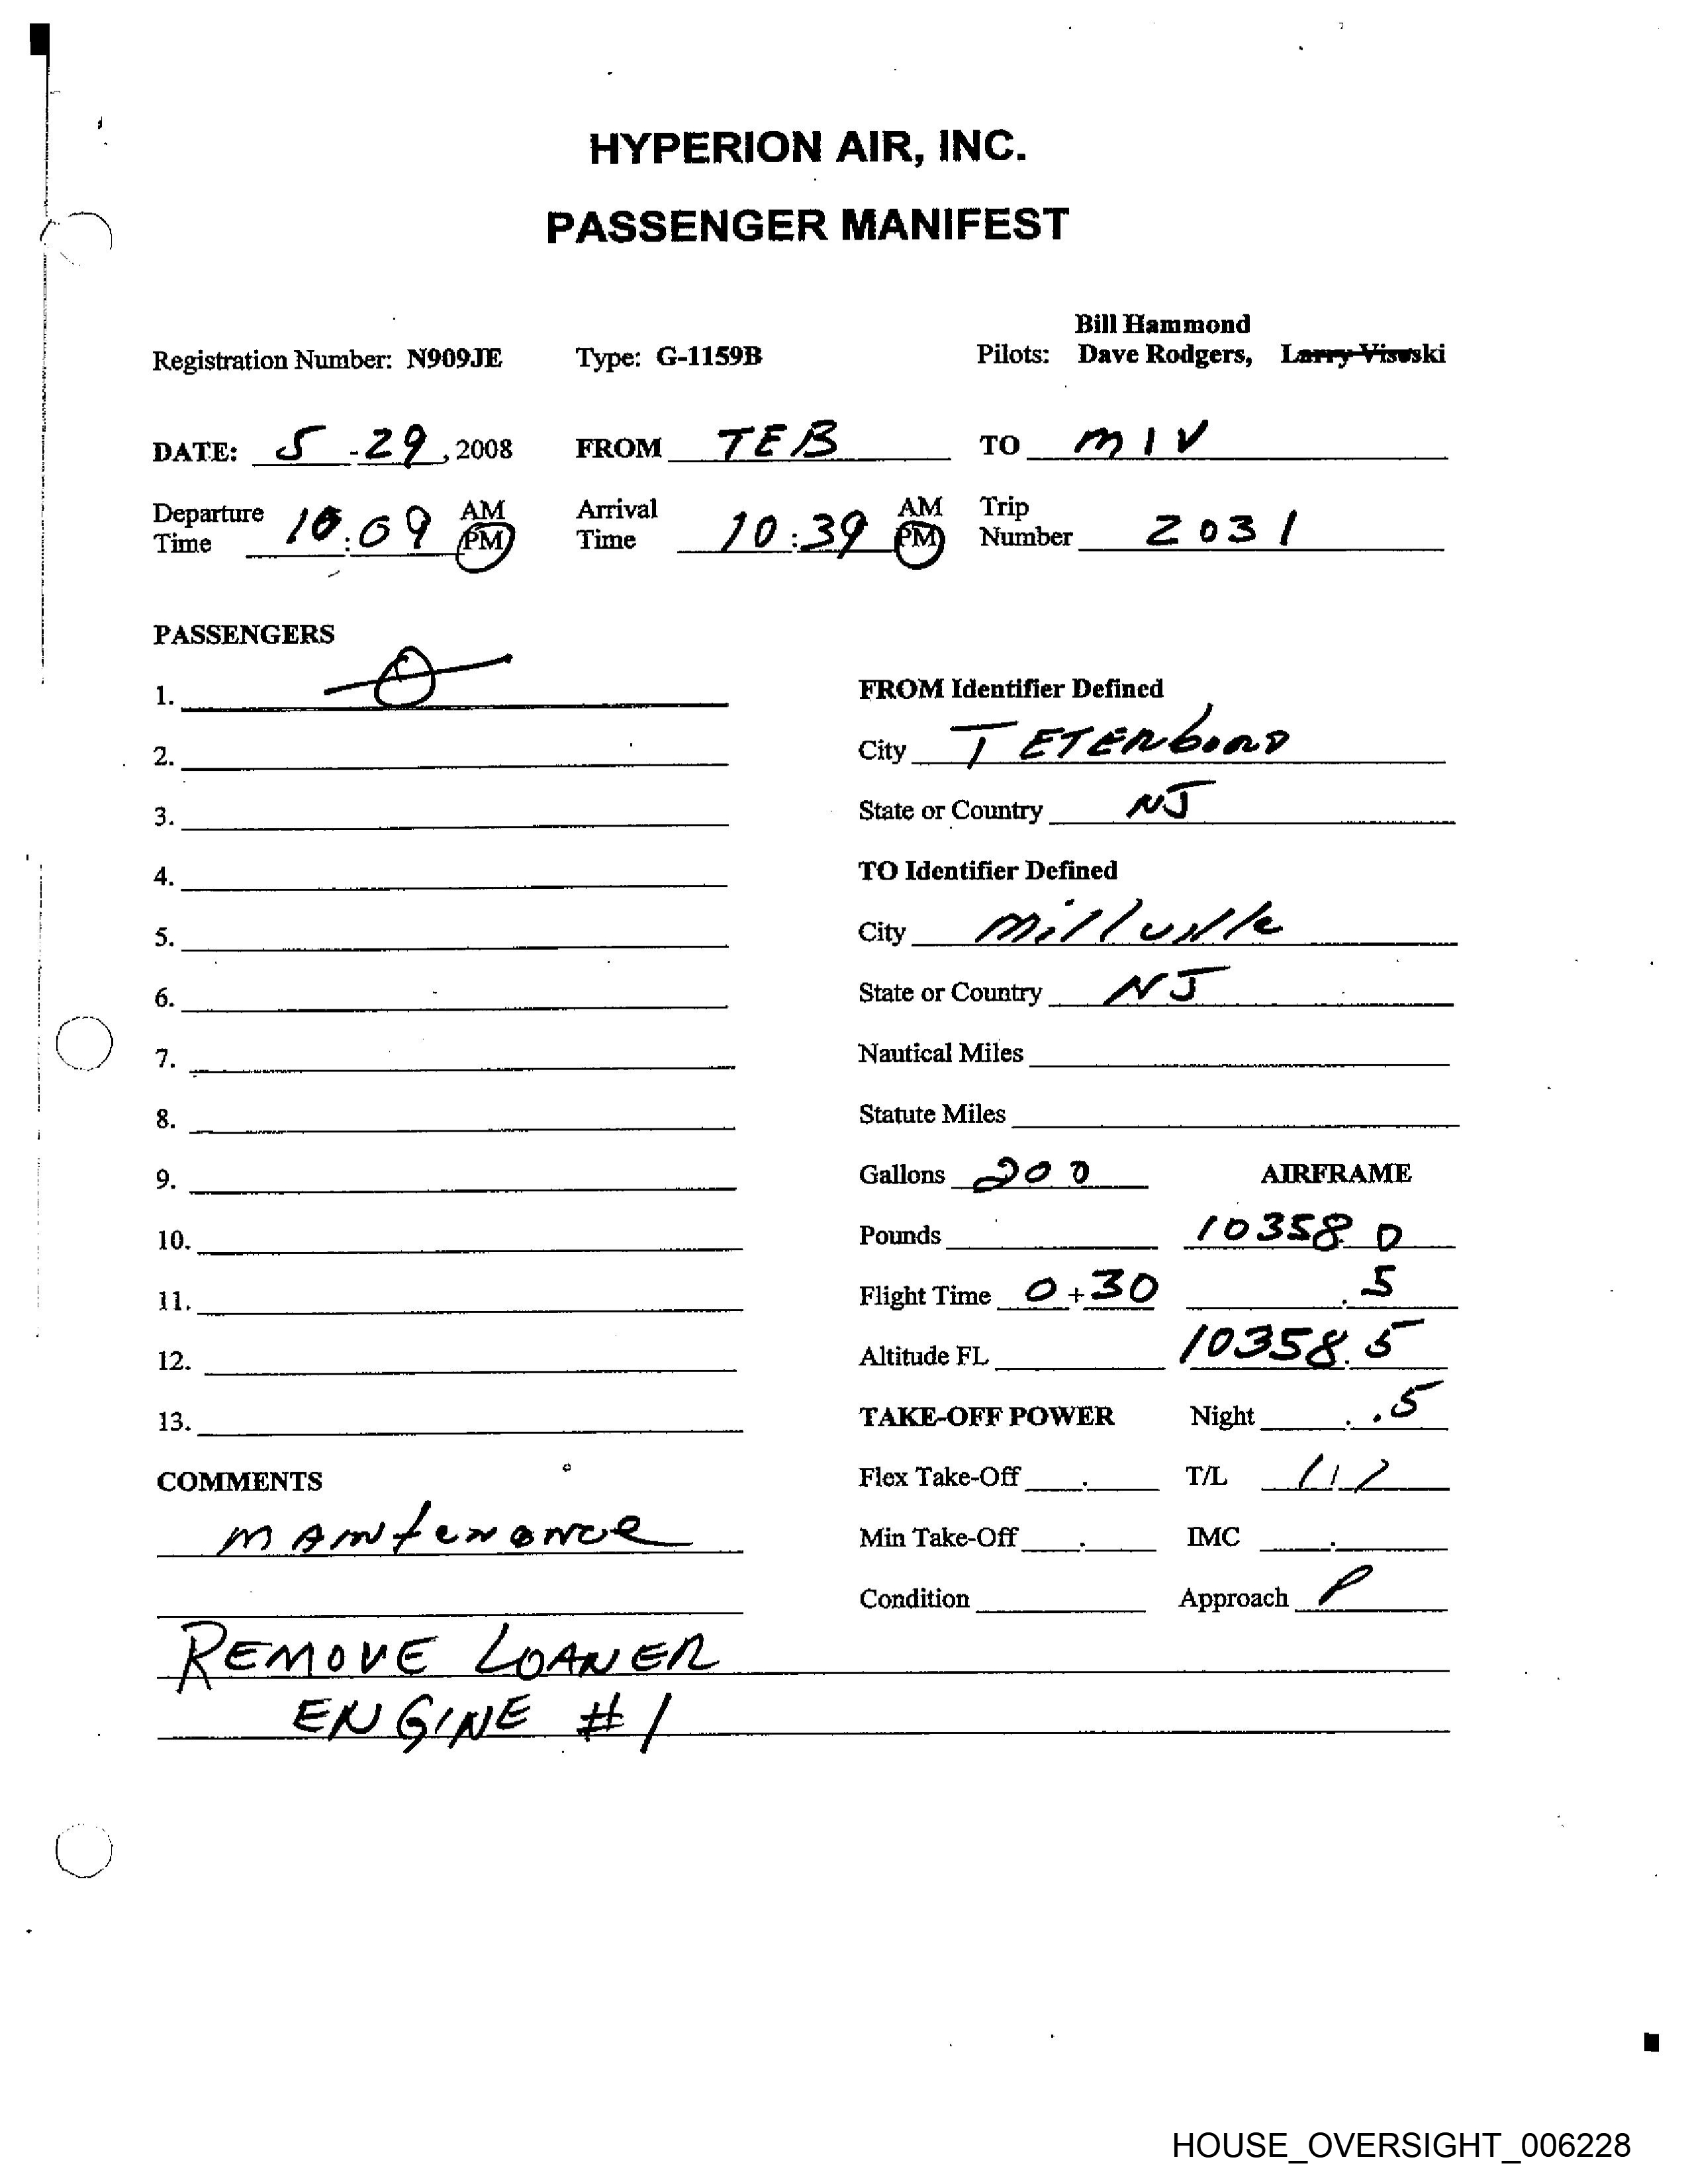 HYPERION AIR, INC.
PASSENGER MANIFEST
Bill Hammond
Registration Number: N909JE Type: G-1159B Pilots: Dave Rodgers, Larry Visoski
DATE: 5 - 29, 2008 FROM TEB TO MIV
Departure Time 10:09 AM PM Arrival Time 10:39 AM PM Trip Number 2031
PASSENGERS
1. 0
2.
3.
4.
5.
6.
7.
8.
9.
10.
11.
12.
13.
COMMENTS
MAINTENANCE
REMOVE LOANER
ENGINE #1
FROM Identifier Defined
City TETERboro
State or Country NJ
TO Identifier Defined
City Millville
State or Country NJ
Nautical Miles
Statute Miles
Gallons 200 AIRFRAME
Pounds 10358.0
Flight Time 0+30 .5
Altitude FL 10358.5
TAKE-OFF POWER Night .5
Flex Take-Off T/L 1/1
Min Take-Off IMC
Condition Approach P
HOUSE_OVERSIGHT_006228